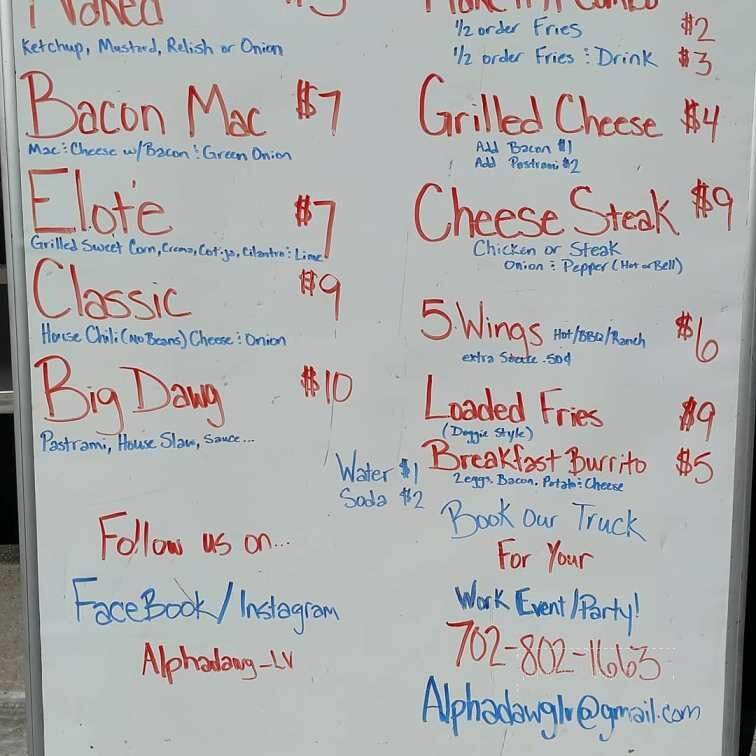 Naked $5
Ketchup, Mustard, Relish or Onion
Bacon Mac $7
Mac & Cheese w/Bacon & Green Onion
Elote $7
Grilled Sweet Corn, Crema, Cotija, Cilantro & Lime
Classic $9
House Chili (No Beans) Cheese & Onion
Big Dawg $10
Pastrami, House Slaw, Sauce...
Water $1
Soda $2
Make it A Combo
1/2 order Fries $2
1/2 order Fries & Drink $3
Grilled Cheese $4
Add Bacon $1
Add Pastrami $2
Cheese Steak $9
Chicken or Steak
Onion & Pepper (Hot or Bell)
5 Wings Hot/BBQ/Ranch $6
extra .50¢
Loaded Fries $9
(Doggie Style)
Breakfast Burrito $5
2 eggs, Bacon, Potato & Cheese
Follow us on...
FaceBook/Instagram
Alphadawg_LV
Book Our Truck
For Your
Work Event/Party!
702-802-1663
Alphadawglv@gmail.com